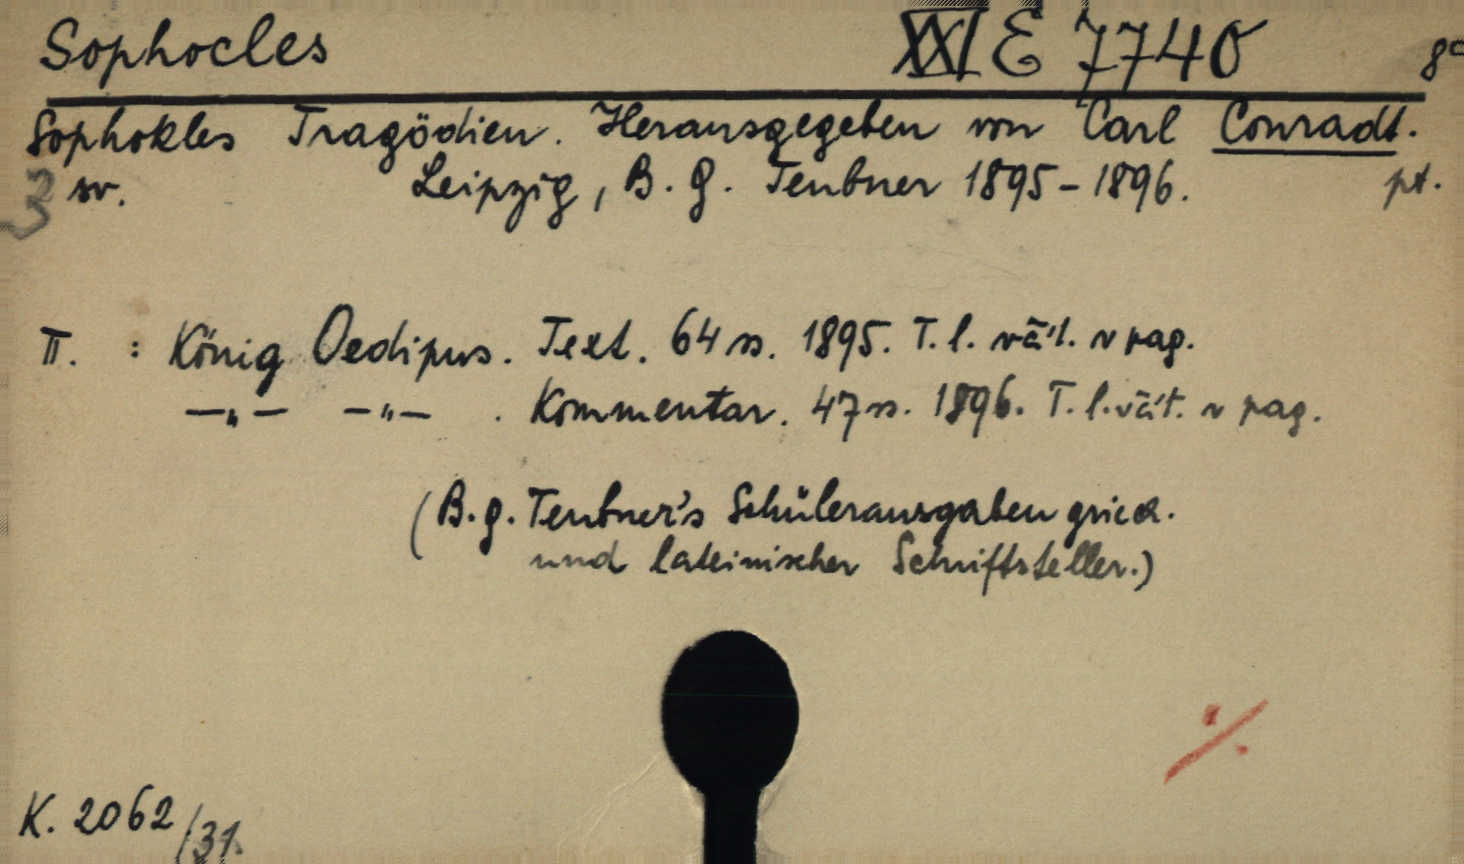 Sophocles XXI E 7740 8°
Sophokles Tragödien. Herausgegeben von Carl Conradt.
3 sv. Leipzig, B. G. Teubner 1895-1896. pt.
II. : König Oedipus. Text. 64 ss. 1895. T. l. váź. v pag.
—„— —„— . Kommentar. 47 ss. 1896. T. l.váź. v pag.
(B. g. Teubner's Schülerausgaben griech.
und lateinischer Schriftsteller.)
K. 2062/31.